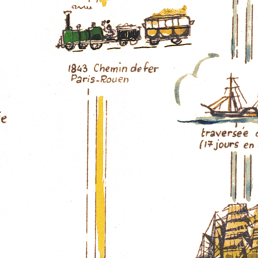 1843 Chemin de fer
Paris-Rouen
traversée
(17 jours en